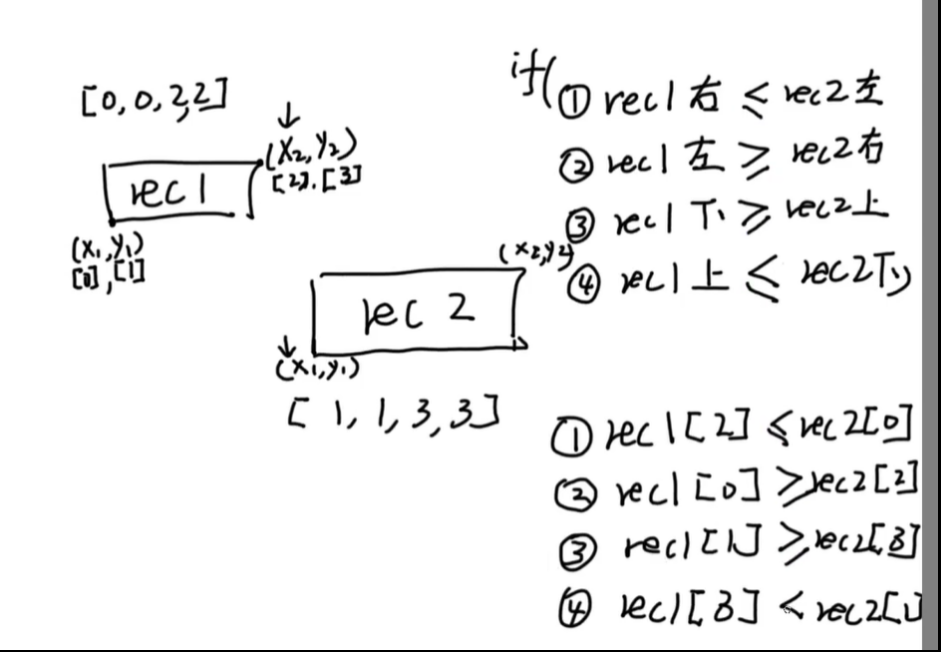 [0,0,2,2]
(X2,Y2)
[2].[3]
rec1
(X1,Y1)
[0],[1]
(x2,y2)
rec 2
(x1,y1)
[1,1,3,3]
if(
① rec1右 ≤ rec2左
② rec1左 ≥ rec2右
③ rec1下 ≥ rec2上
④ rec1上 ≤ rec2下)
① rec1[2] ≤ rec2[0]
② rec1[0] ≥ rec2[2]
③ rec1[1] ≥ rec2[3]
④ rec1[3] < rec2[1]